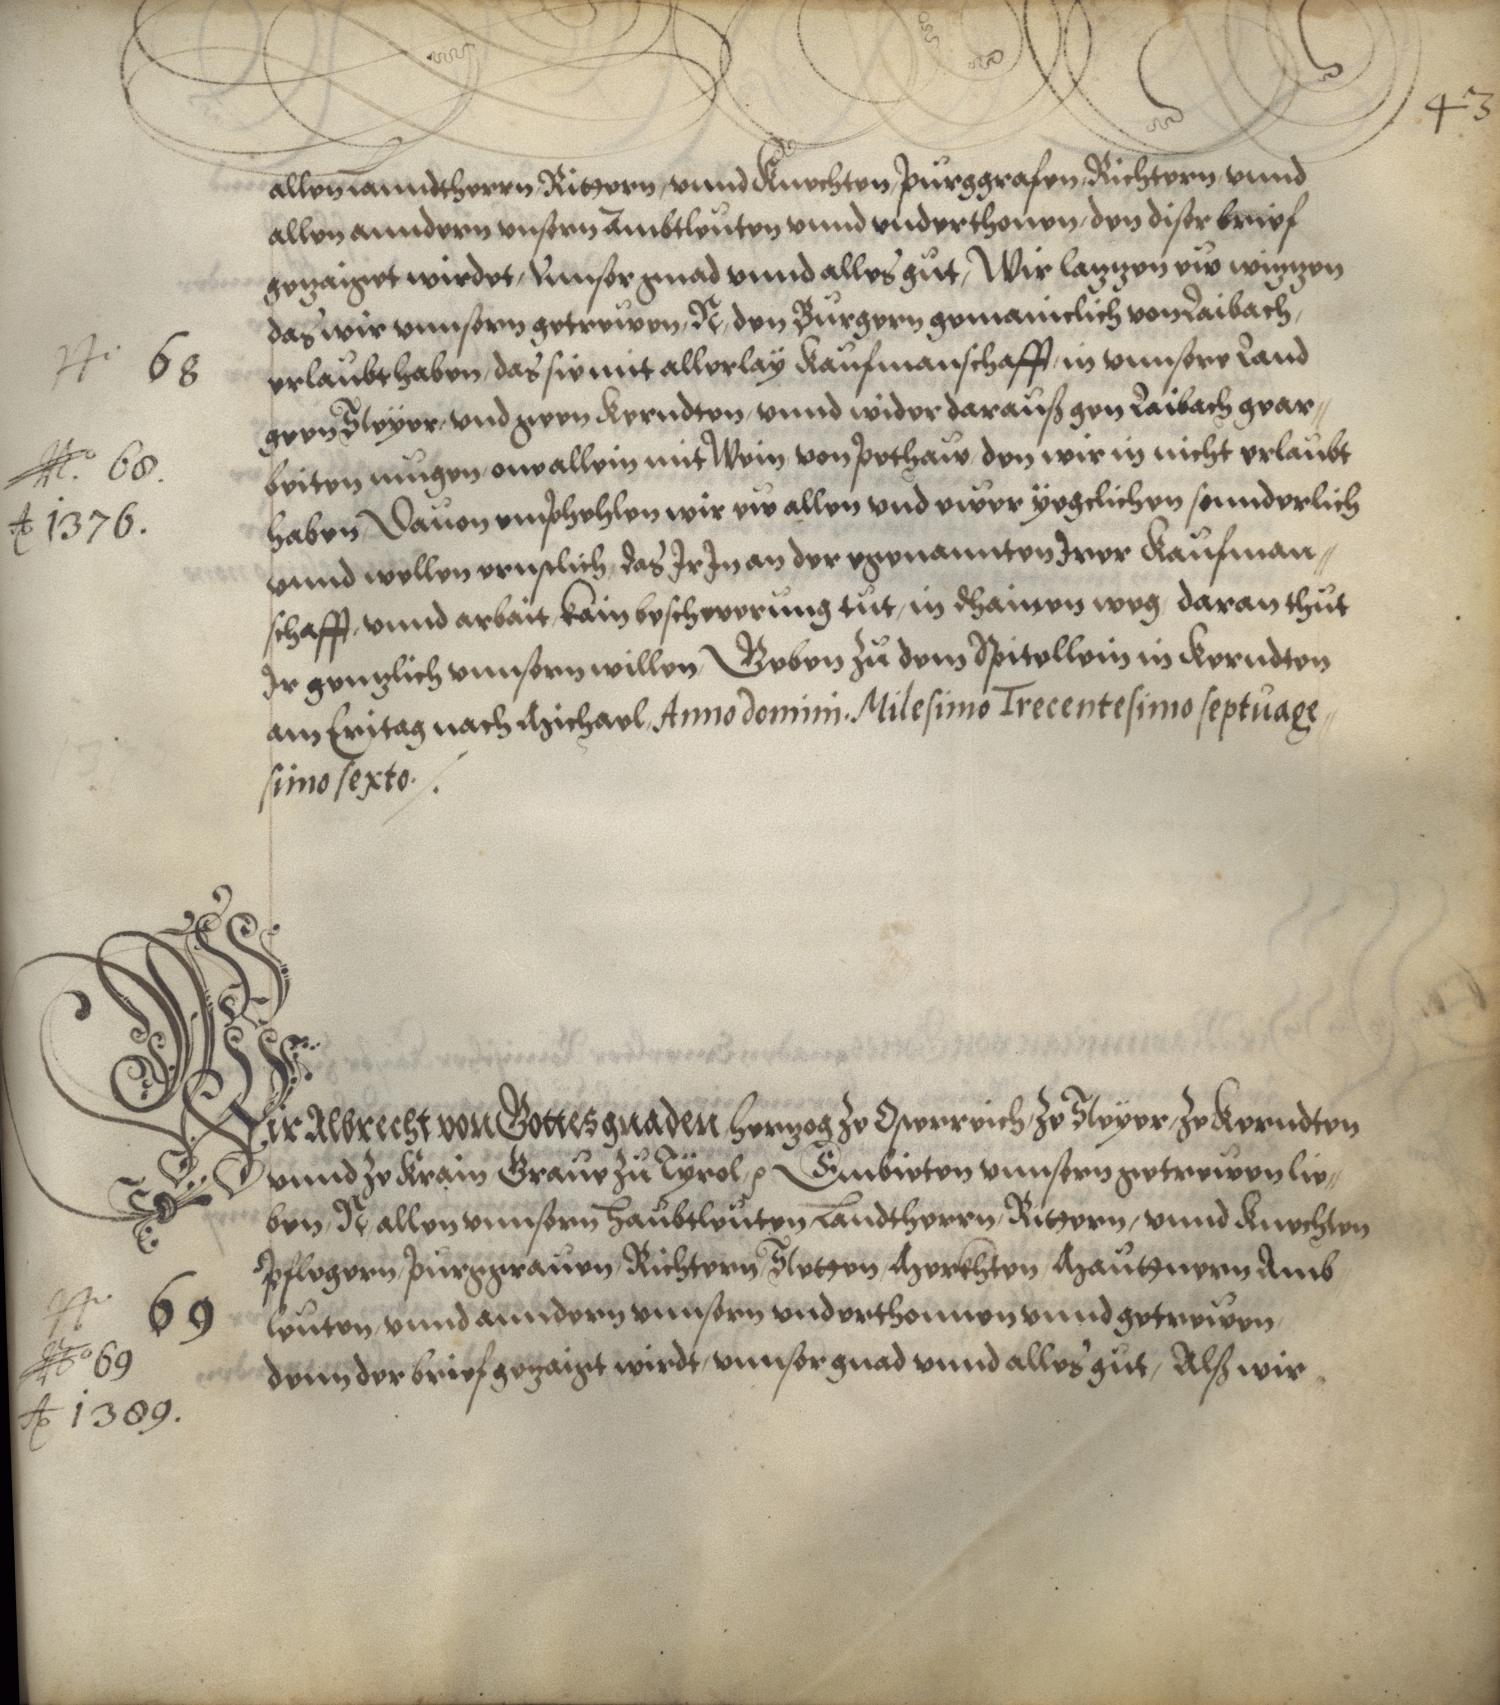 43
allen lanndtherrn, Rittern, vnnd Knechten, Purggrafen, Richtern, vnnd
allen anndern vnsern Ambtleuten vnnd vnderthonen, den diser brief
gezaiget wirdet, Vnnser gnad vnnd alles gut, Wir lazzen ew wizzen
das wir vnnsern getrewen, N, den Burgern gemainclich von Laibach,
N.º 68
erlaubt haben, das sie mit allerlay Kaufmanschafft, in vnnsere Land
geen Steyer, vnd geen Kerndten, vnnd wider darauß gen Laibach gear„
N.º 68.
beiten mugen, one allein mit Wein von Pethaw, den wir in nicht erlaubt
Aº 1376.
haben, Dauon emphehlen wir ew allen vnd ewer yegclichen sonnderlich
vnnd wellen ernstlich, das Ir In an der egenannten Irer Kaufman„
schafft, vnnd arbait, kain beschwerung tut, in dhainen weg, daran thut
Ir genzlich vnnsern willen, Geben zu dem Spitellein in Kerndten
am Eritag nach Michael, Anno domini. Milesimo Trecentesimo septuage„
simo sexto.
Wir Albrecht von Gottes gnaden, Herzog ze Osterreich, ze Steyer, ze Kerndten
vnnd ze Krain, Graue zu Tyrol, &c Embieten vnnsern getrewen lie„
ben, N, allen vnnsern Haubtleuten, Landtherrn, Rittern, vnnd Knechten
Pflegern, Purggrauen, Richtern, Stetten, Merkhten, Mauttnern Amb
N.º 69
leuten, vnnd anndern vnnsern vnderthonnen vnnd getrewen,
N.º 69
denn der brief gezaigt wirdt, vnnser gnad vnnd alles gut, Alß wir
Aº 1389.